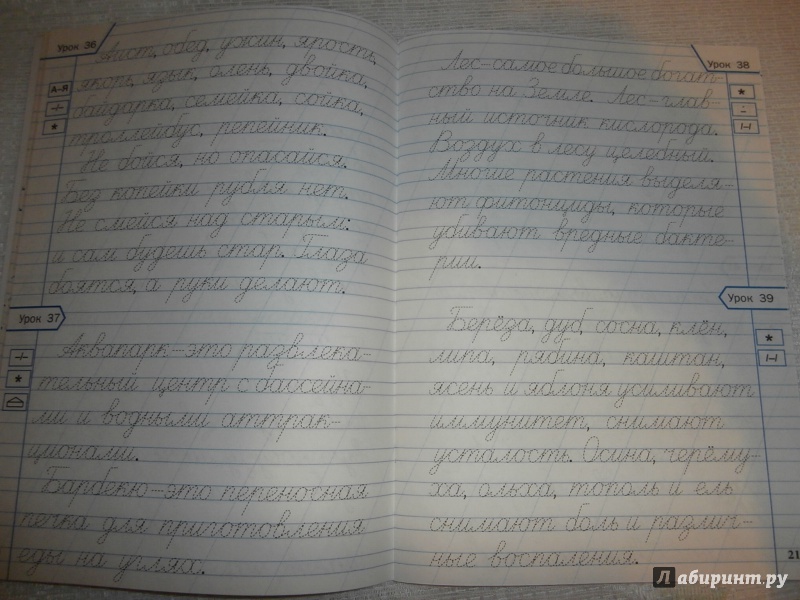 Урок 36
А–Я
Аист, обед, ужин, ярость,
якорь, язык, олень, двойка,
байдарка, семейка, сойка,
троллейбус, репейник.
Не бойся, но опасайся.
Без копейки рубля нет.
Не смейся над старым:
и сам будешь стар. Глаза
боятся, а руки делают.
Урок 37
Аквапарк – это развлека-
тельный центр с бассейна-
ми и водными аттрак-
ционами.
Барбекю – это переносная
печка для приготовления
еды на углях.
Урок 38
Лес – самое большое богат-
ство на Земле. Лес – глав-
ный источник кислорода.
Воздух в лесу целебный.
Многие растения выделя-
ют фитонциды, которые
убивают вредные бакте-
рии.
Урок 39
Берёза, дуб, сосна, клён,
липа, рябина, каштан,
ясень и яблоня усиливают
иммунитет, снимают
усталость. Осина, черёму-
ха, ольха, тополь и ель
снимают боль и различ-
ные воспаления.
21
Лабиринт.ру